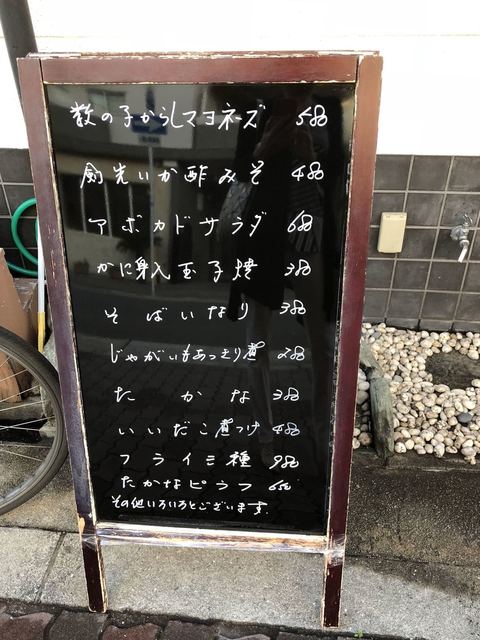 数の子からしマヨネーズ 580
いか酢みそ 480
アボカドサラダ 680
かに身入玉子焼 380
そばいなり 380
じゃがいもあっさり煮 280
たかな 380
いいだこ煮つけ 480
フライミ種 980
たかなピラフ 650
その他いろいろとございます。